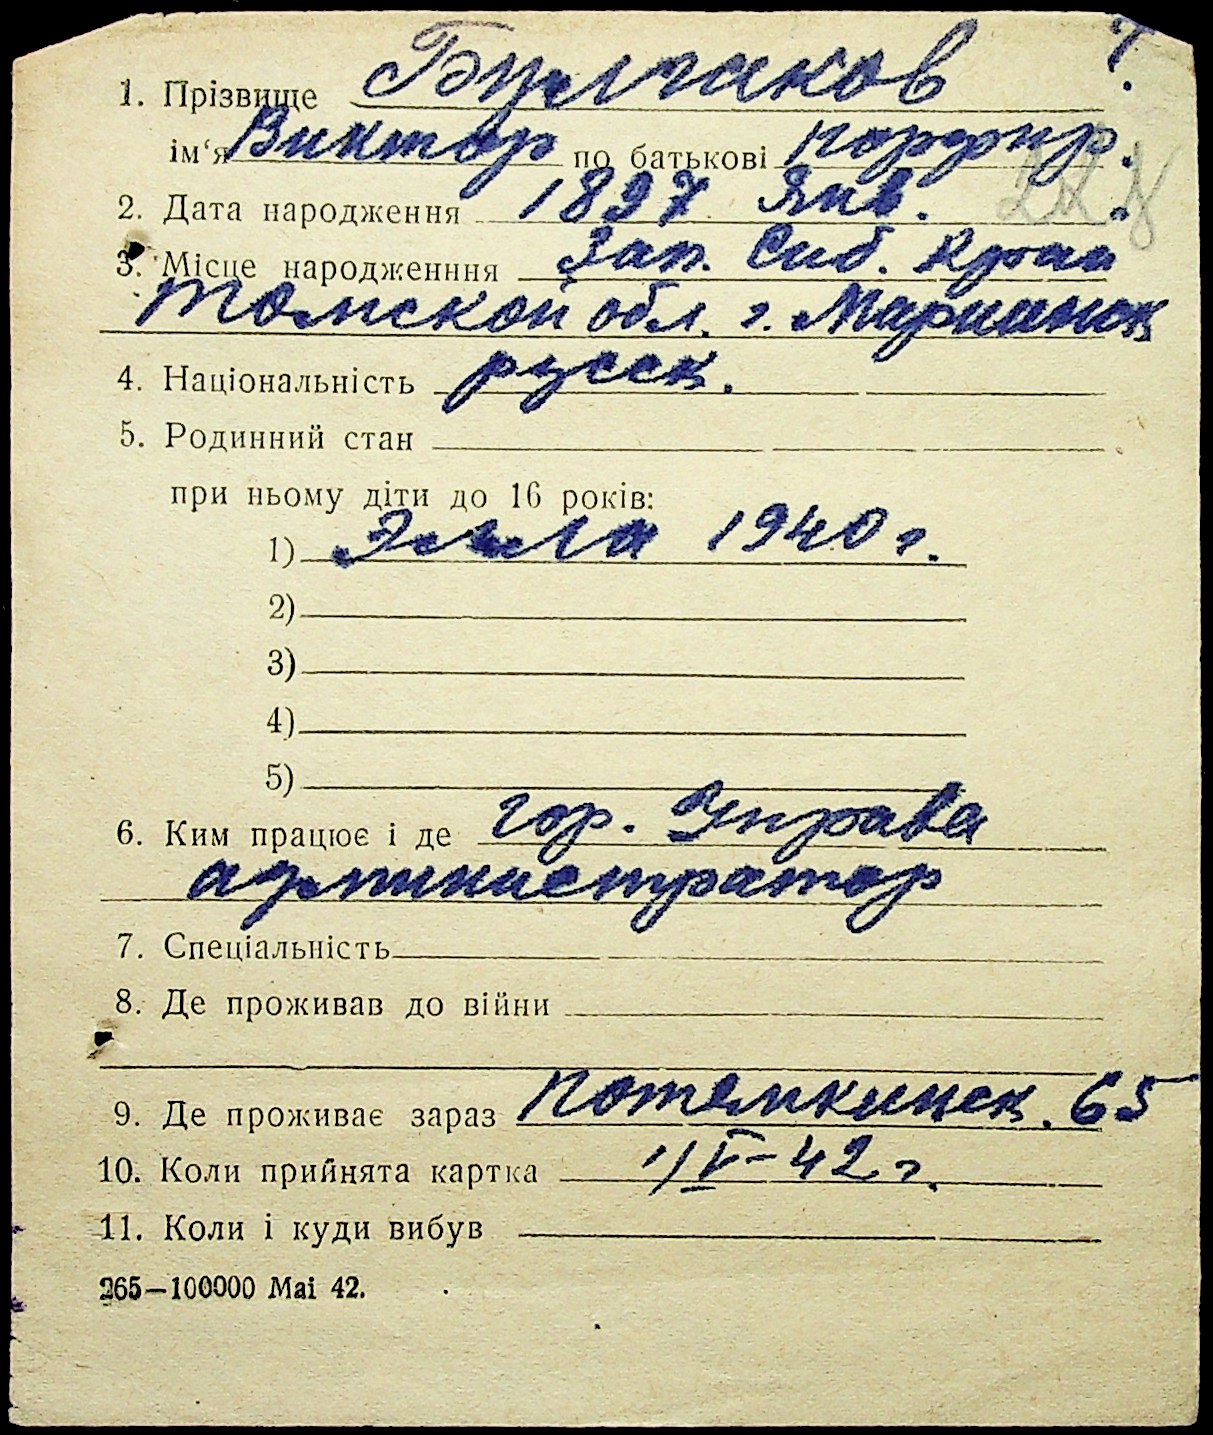 1. Прізвище Булгаков
ім‘я Виктор по батькові Порфир.
2. Дата народження 1897 Янв.
3. Місце народженння Зап. Сиб. Края
Томской обл. г. Мариинск
4. Національність русск.
5. Родинний стан
при ньому діти до 16 років:
1) Элла 1940 г.
2)
3)
4)
5)
6. Ким працює і де гор. Управа
администратор
7. Спеціальність
8. Де проживав до війни
9. Де проживає зараз Потемкинск. 65
10. Коли прийнята картка 1/V–42 г.
11. Коли і куди вибув
265—100000 Mai 42.